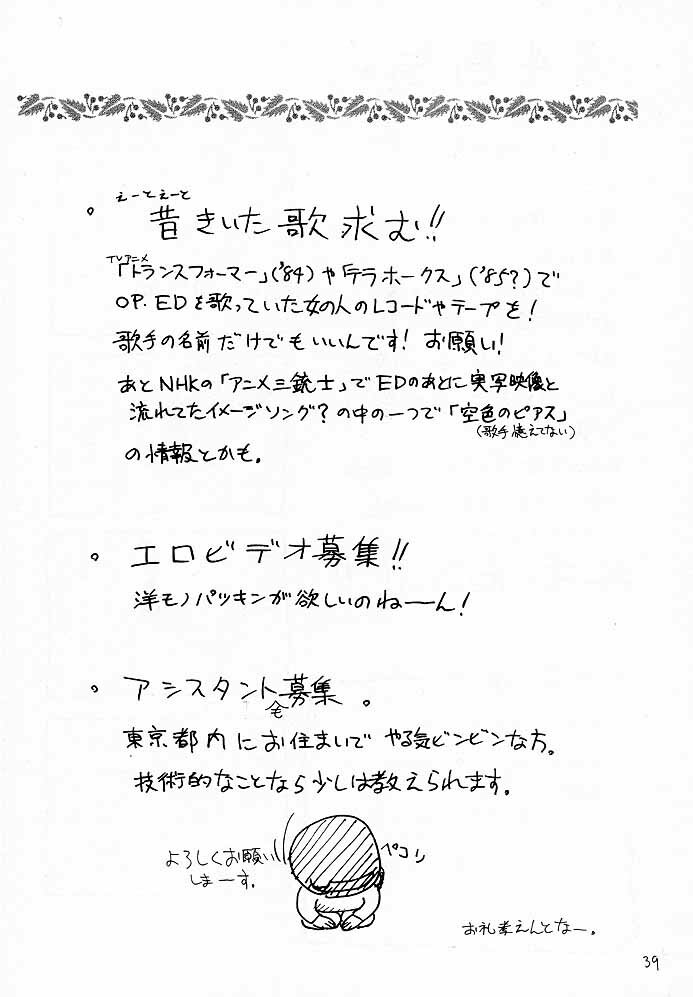 えーとえーと
。昔きいた歌求む!!
TVアニメ
「トランスフォーマー」('84)や「テラホークス」('85?)で
OP.EDを歌っていた女の人のレコードやテープを!
歌手の名前だけでもいいんです!お願い!
あとNHKの「アニメ三銃士」でEDのあとに実写映像と
流れてたイメージソング?の中の一つで「空色のピアス」
(歌手憶えてない)
の情報とかも。
。エロビデオ募集!!
洋モノパツキンが欲しいのねーーん!
。アシスタント募集。
東京都内にお住まいで やる気ビンビンな方。
技術的なことなら少しは教えられます。
よろしくお願い
しまーす。
ペコリ
お礼考えんとなー。
39